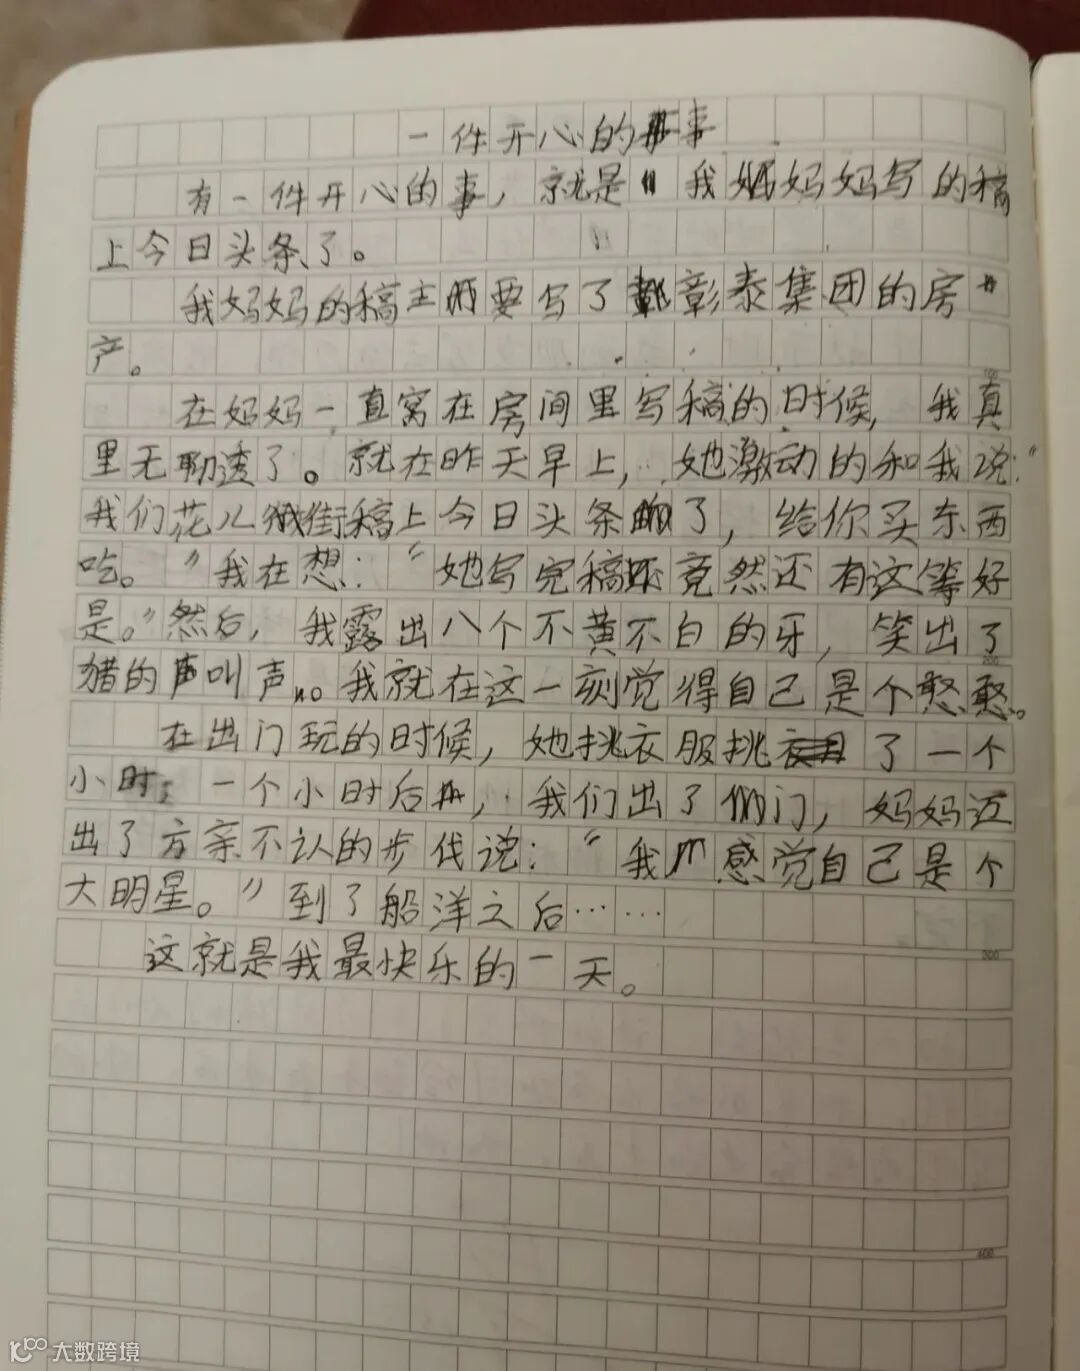 一件开心的事
有一件开心的事，就是我妈妈写的稿
上今日头条了。
我妈妈的稿主要写了彰泰集团的房
产。
在妈妈一直窝在房间里写稿的时候，我真
里无聊透了。就在昨天早上，她激动的和我说：“
我们花儿街稿上今日头条了，给你买东西
吃。”我在想：“她写完稿竟然还有这等好
是。”然后，我露出八个不黄不白的牙，笑出了
猪的叫声。我就在这一刻觉得自己是个憨憨。
在出门玩的时候，她挑衣服挑了一个
小时；一个小时后，我们出了门，妈妈迈
出了六亲不认的步伐说：“我感觉自己是个
大明星。”到了船洋之后……
这就是我最快乐的一天。
100
200
300
400
大数跨境